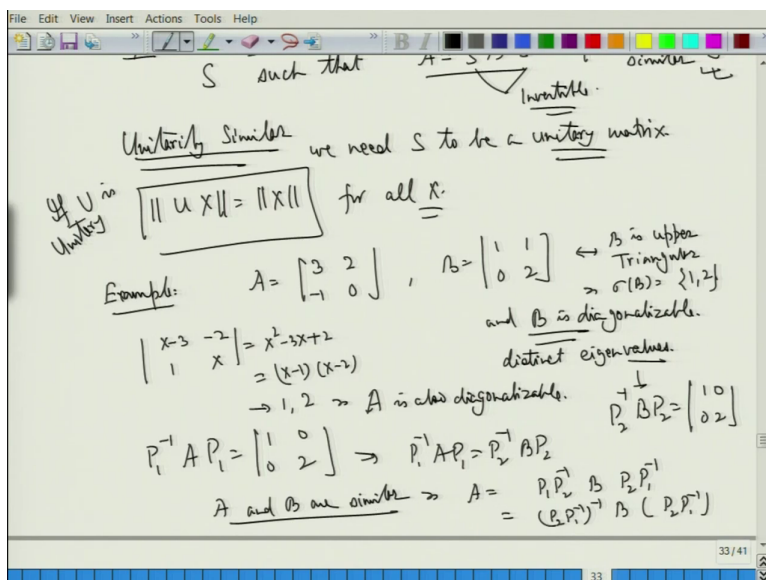 File Edit View Insert Actions Tools Help
S such that A = S B similar
Invertible.
Unitarily Similar we need S to be a unitary matrix.
If U is Unitary || U X || = || X || for all X.
Example: A = [3 2; -1 0], B = [1 1; 0 2] ↔ B is upper
Triangular
⇒ σ(B) = {1,2}
and B is diagonalizable.
distinct eigenvalues.
|x-3 -2; 1 x| = x²-3x+2
= (x-1)(x-2)
→ 1, 2 ⇒ A is also diagonalizable.
P₂⁻¹ B P₂ = [1 0; 0 2]
P₁⁻¹ A P₁ = [1 0; 0 2] ⇒ P₁⁻¹ A P₁ = P₂⁻¹ B P₂
A and B are similar ⇒ A = P₁ P₂⁻¹ B P₂ P₁⁻¹
= (P₂ P₁⁻¹)⁻¹ B (P₂ P₁⁻¹)
33 / 41
33